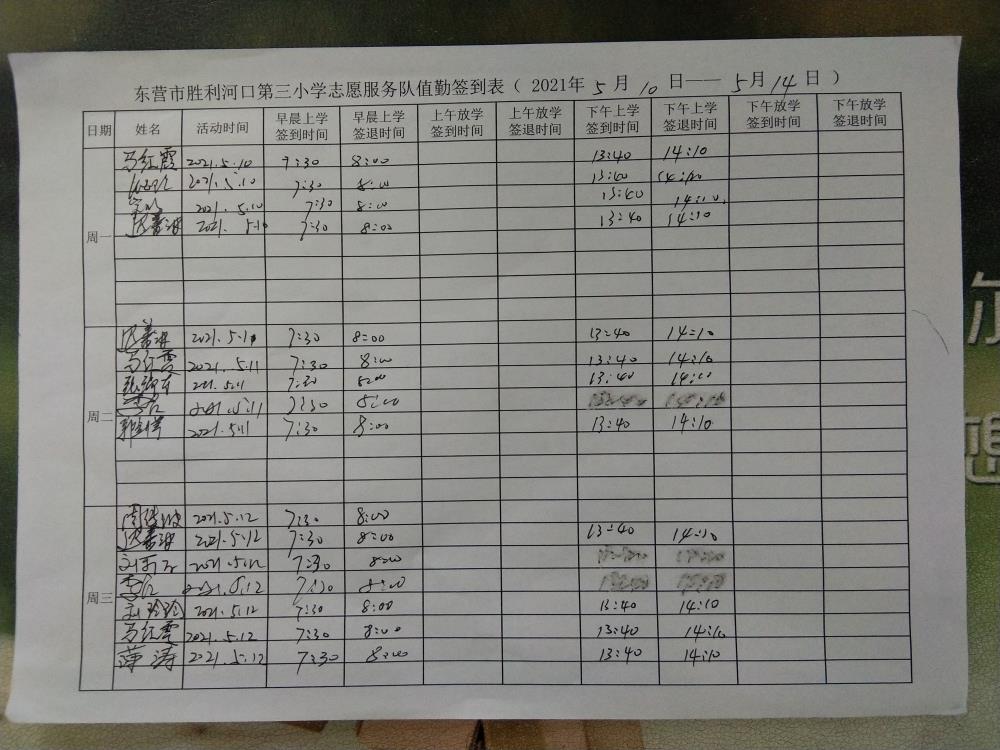 东营市胜利河口第三小学志愿服务队值勤签到表（ 2021年 5 月 10 日—— 5月 14 日 ）
日期 姓名 活动时间 早晨上学签到时间 早晨上学签退时间 上午放学签到时间 上午放学签退时间 下午上学签到时间 下午上学签退时间 下午放学签到时间 下午放学签退时间
周一
马红霞 2021.5.10 7:30 8:00 13:40 14:10
2021.5.10 7:30 8:00 13:40 14:10
2021.5.10 7:30 8:00 13:40 14:10
2021.5.10 7:30 8:00 13:40 14:10
周二
2021.5.10 7:30 8:00 13:40 14:10
马红霞 2021.5.11 7:30 8:00 13:40 14:10
2021.5.11 7:30 8:00 13:40 14:10
2021.5.11 7:30 8:00
2021.5.11 7:30 8:00 13:40 14:10
周三
2021.5.12 7:30 8:00
2021.5.12 7:30 8:00 13:40 14:10
2021.5.12 7:30 8:00
2021.5.12 7:30 8:00
刘玲玲 2021.5.12 7:30 8:00 13:40 14:10
马红霞 2021.5.12 7:30 8:00 13:40 14:10
薄涛 2021.5.12 7:30 8:00 13:40 14:10
尔
想